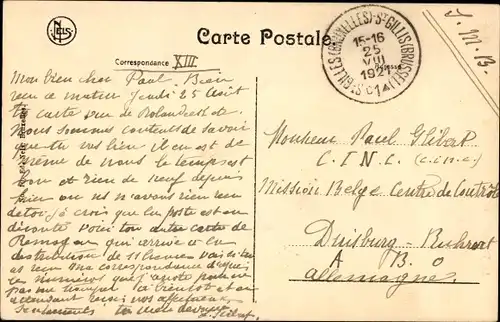 NELS
Carte Postale
Correspondance XIII
ST GILLES (BRUXELLES) - ST GILLIS (BRUSSEL)
15-16
25
VIII
1921
J. M. B.
Mon bien cher Paul Bien
reçu ce matin Jeudi 25 Août
ta carte vue de Rolandseck
Nous sommes contents de savoir
que tu vas bien il en est de
même de nous le temps est
bon et rien de neuf depuis
hier on n'avons rien reçu
de toi je crois que la poste est en
déroute voici ton autre carte de
Remagen qui arrive a la
distribution de 11 heures
ma correspondance d'après
les numéros
pas me tromper à bientôt et en
attendant reçois nos affectueux
sentiments ton
Gilbert
Monsieur Paul Gilbert
C. I. N. C. (C.I.N.C.)
Mission Belge Centre de Contrôle
Duisburg - Ruhrort
A B O
Allemagne